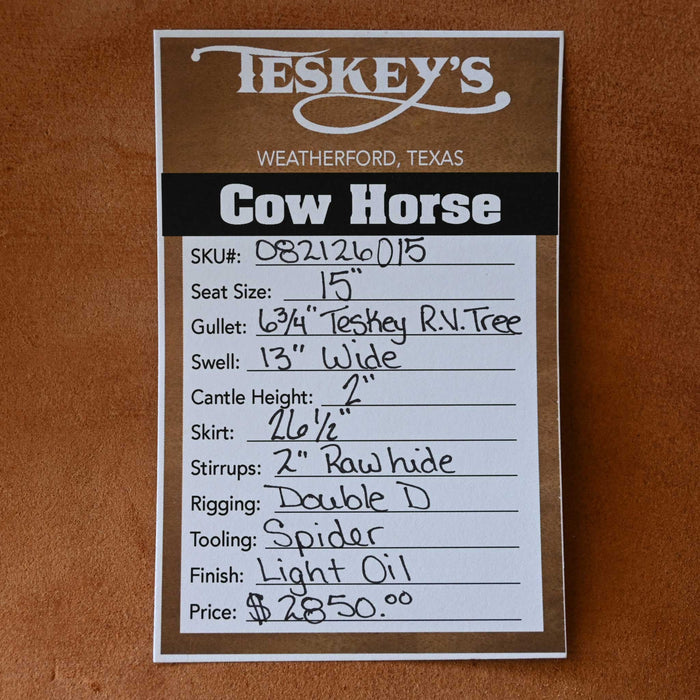 TESKEY'S
WEATHERFORD, TEXAS
Cow Horse
SKU#: 082126015
Seat Size: 15"
Gullet: 6 3/4" Teskey R.V. Tree
Swell: 13" Wide
Cantle Height: 2"
Skirt: 26 1/2"
Stirrups: 2" Rawhide
Rigging: Double D
Tooling: Spider
Finish: Light Oil
Price: $2850.00